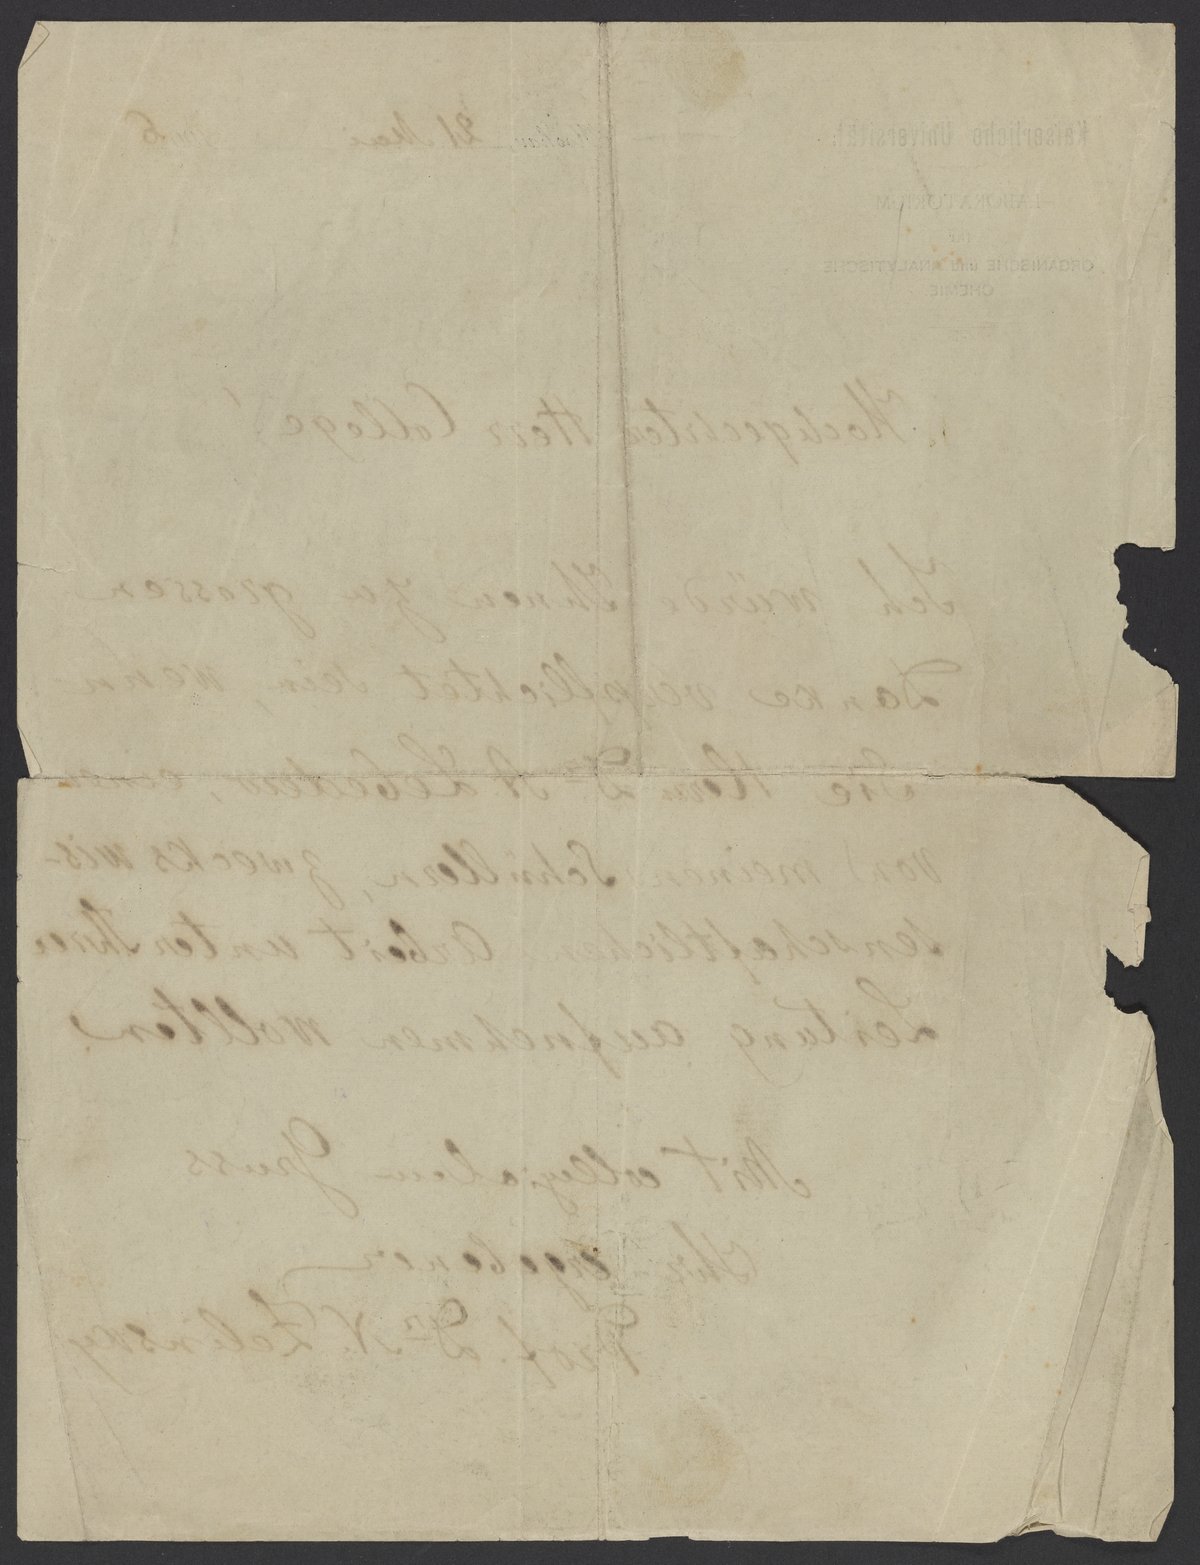 Kaiserliche Universität.
LABORATORIUM
FÜR
ORGANISCHE und ANALYTISCHE
CHEMIE.
Moskau 21 Mai
Hochgeehrter Herr College!
Ich würde Ihnen zu grossem
Danke verpflichtet sein, wenn
Sie Herrn Dr A. Lebedew, einen
von meinen Schülern, zwecks wis-
senschaftlicher Arbeit unter Ihrer
Leitung aufnehmen wollten.
Mit collegialem Gruss
Ihr ergebener
Prof. Dr N. Zelinsky